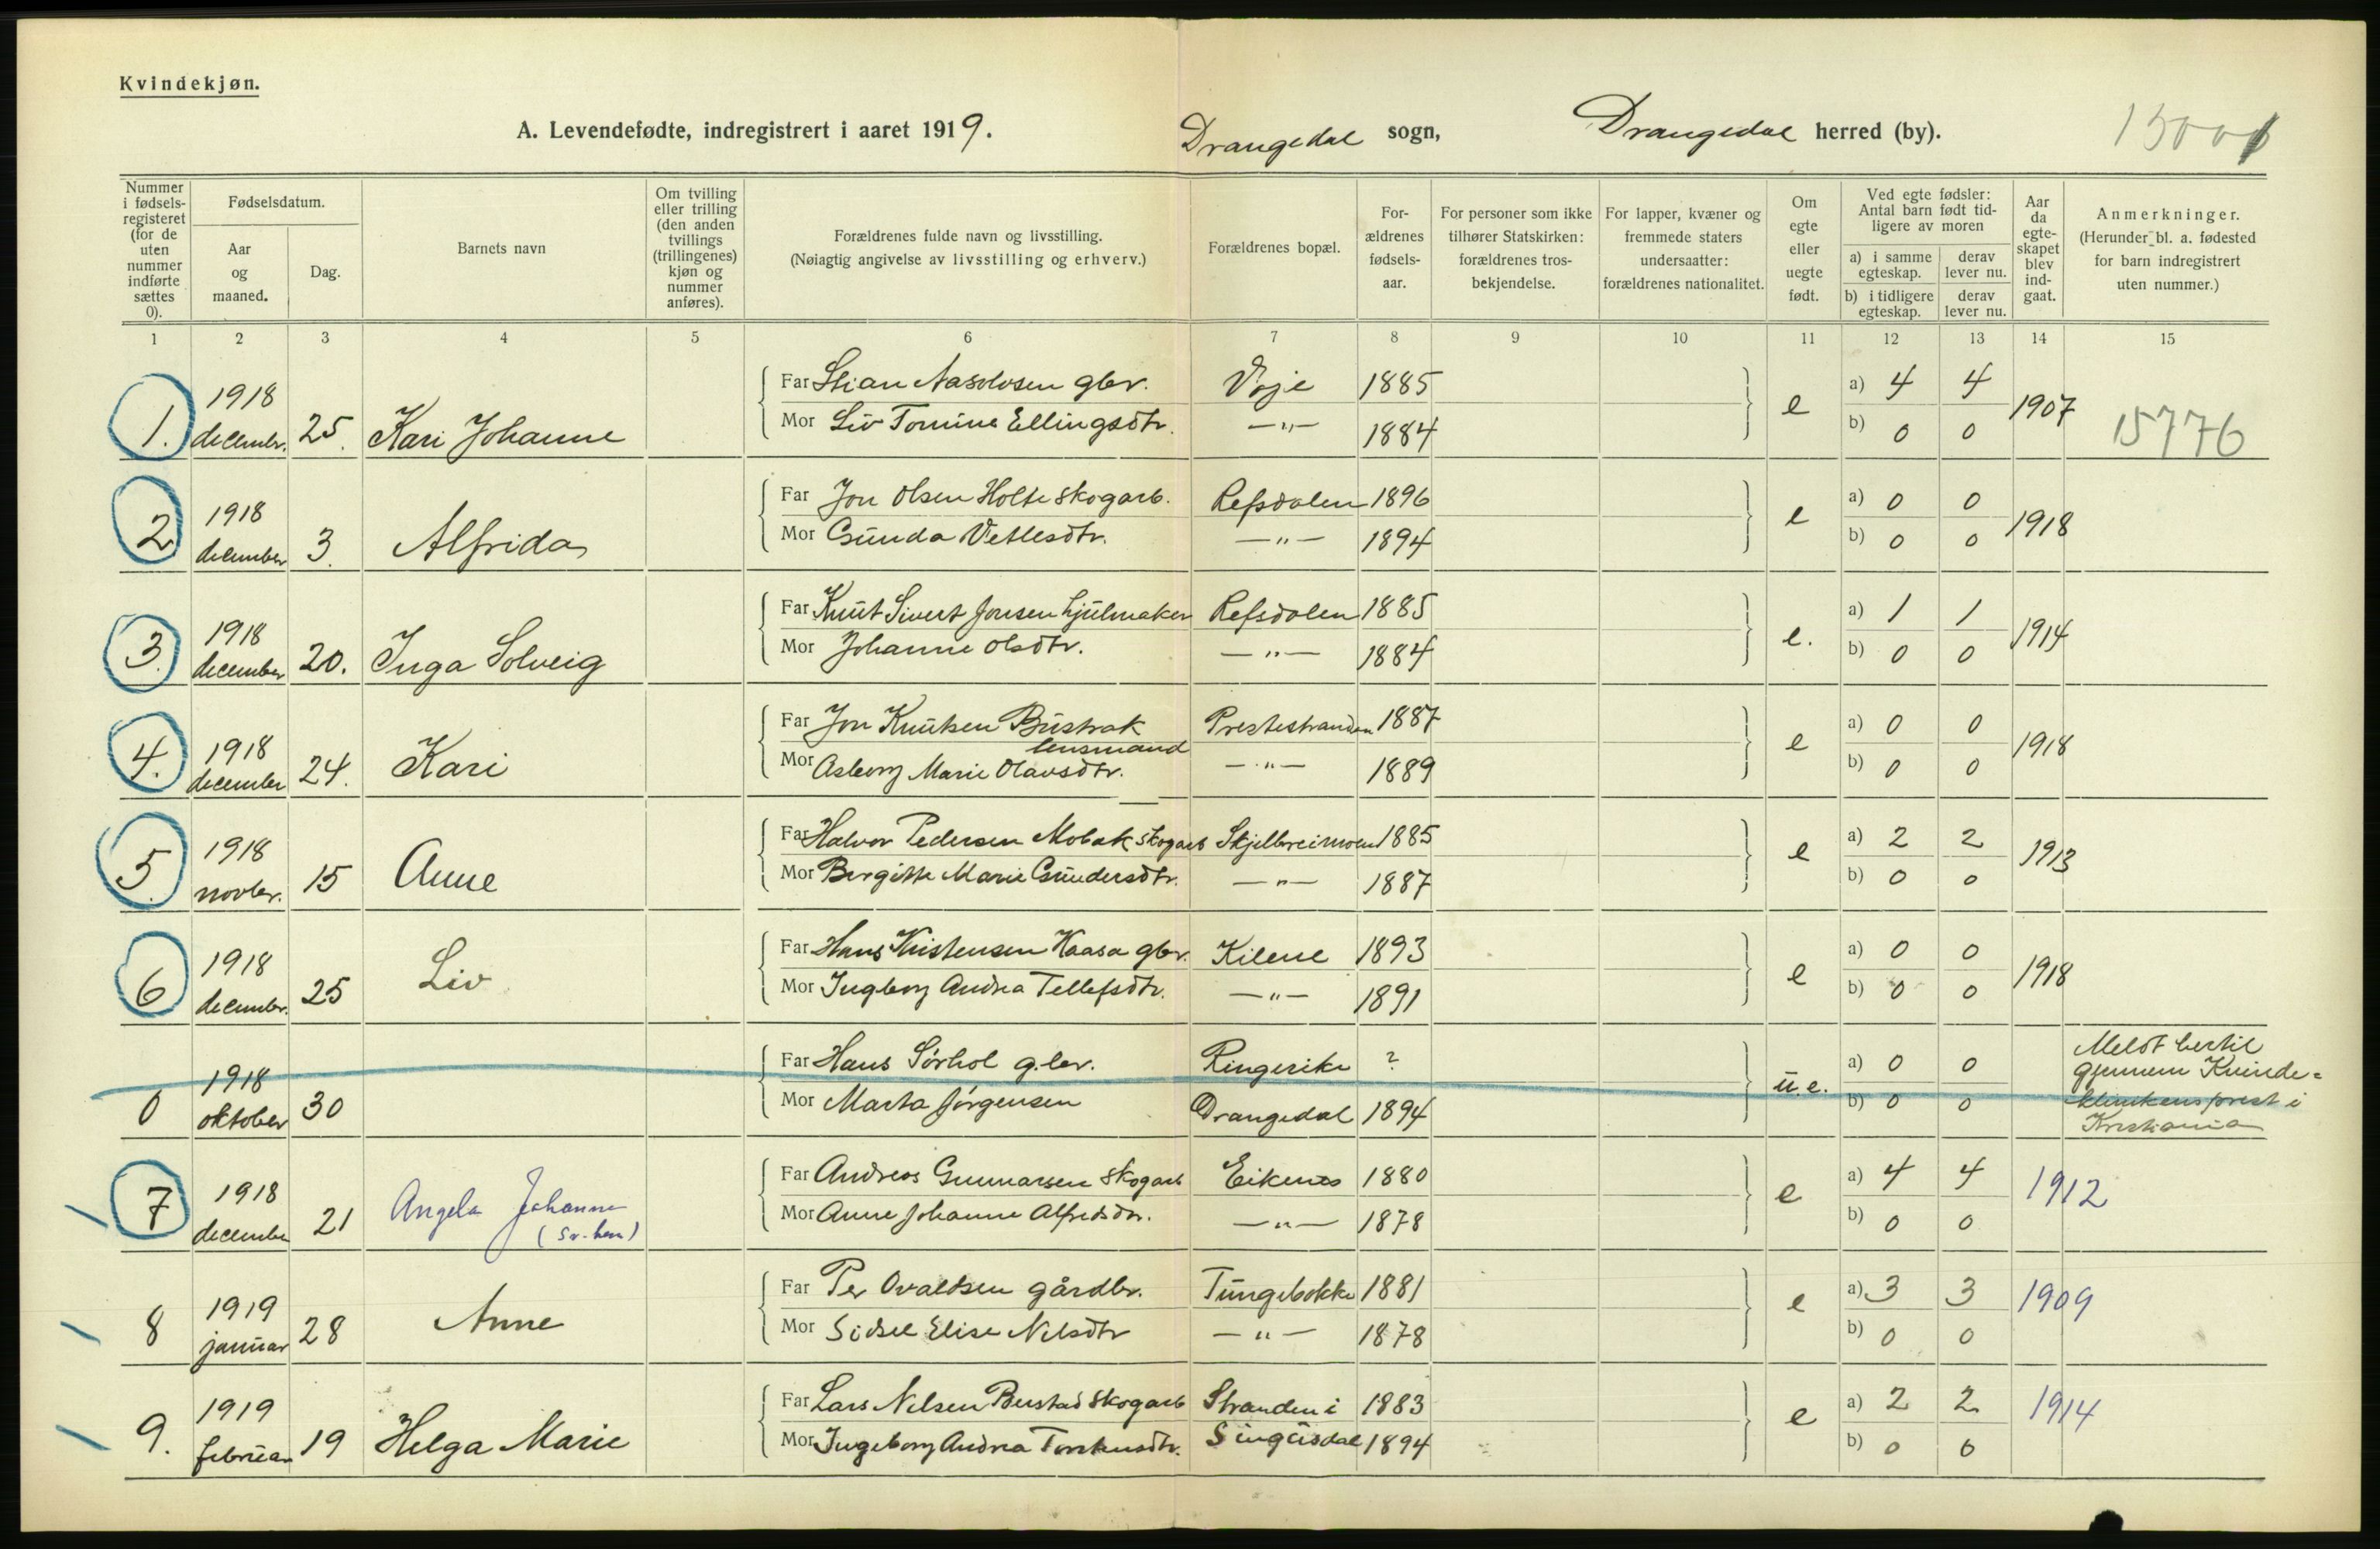 Kvindekjøn.
A. Levendefødte, indregistrert i aaret 1919.
Drangedal sogn,
Drangedal herred (by).
Nummer i fødsels-registeret (for de uten nummer indførte sættes 0).
Fødselsdatum.
Aar og maaned.
Dag.
Barnets navn
Om tvilling eller trilling (den anden tvillings (trillingenes) kjøn og nummer anføres).
Forældrenes fulde navn og livsstilling.
(Nøiagtig angivelse av livsstilling og erhverv.)
Forældrenes bopæl.
For-ældrenes fødsels-aar.
For personer som ikke tilhører Statskirken: forældrenes tros-bekjendelse.
For lapper, kvæner og fremmede staters undersaatter: forældrenes nationalitet.
Om egte eller uegte født.
Ved egte fødsler: Antal barn født tid-ligere av moren
a) i samme egteskap.
derav lever nu.
b) i tidligere egteskap.
derav lever nu.
Aar da egte-skapet blev ind-gaat.
Anmerkninger.
(Herunder bl. a. fødested for barn indregistrert uten nummer.)
1 2 3 4 5 6 7 8 9 10 11 12 13 14 15
Far Stian Aasolvsen gbr. Voje 1885 a) 4 4
1. 1918 decembr. 25. Kari Johanne e 1907 15776
Mor Liv Tomine Ellingsdtr. —"— 1884 b) 0 0
Far Jon Olsen Holte skogarb. Refsdalen 1896 a) 0 0
2 1918 december 3. Alfrida e 1918
Mor Gunda Vetlesdtr. —"— 1894 b) 0 0
Far Knut Sivert Jonsen hjulmaker Refsdalen 1885 a) 1 1
3. 1918 december 20. Inga Solveig e. 1914
Mor Johanne Olsdtr. —"— 1884 b) 0 0
Far Jon Knutsen Bustrak lensmand Prestestranden 1887 a) 0 0
4. 1918 december 24. Kari e 1918
Mor Asborg Marie Olavsdtr. —"— 1889 b) 0 0
Far Halvor Pedersen Mobak skogarb Skjelbreimoen 1885 a) 2 2
5. 1918 novbr. 15 Anne e 1913
Mor Birgitte Marie Gundersdtr. —"— 1887 b) 0 0
Far Hans Kristensen Kaasa gbr. Kilene 1893 a) 0 0
6 1918 decembr. 25 Liv e 1918
Mor Ingborg Andrea Tellefsdtr. —"— 1891 b) 0 0
Far Hans Sørhol g.br. Ringerike ? a) 0 0
0 1918 oktober 30 u.e. Meldt hertil gjennem Kvinde=klinikens prest i Kristiania
Mor Marta Jørgensen Drangedal 1894 b) 0 0
Far Andreas Gunnarsen skogarb Eikenes 1880 a) 4 4
7 1918 december 21 Angela Johanne e 1912
Mor Anne Johanne Alfredsdtr. —"— 1878 b) 0 0
Far Per Ovaldsen gårdbr. Tungebokke 1881 a) 3 3
8 1919 januar 28 Anne e 1909
Mor Sidsel Elise Nilsdtr —"— 1878 b) 0 0
Far Lars Nilsen Berstad skogarb Stranden i 1883 a) 2 2
9. 1919 februar 19 Helga Marie e 1914
Mor Ingeborg Andrea Torstensdtr. Singusdal 1894 b) 0 0